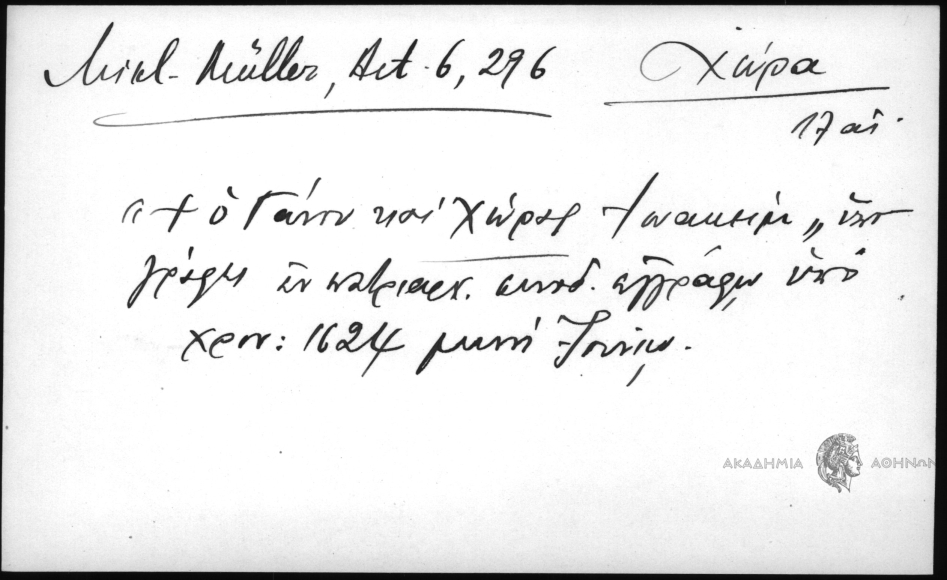 Mikl- Müller, Act. 6, 296
Χώρα
17 αἰ.
"+ ὁ Γάνου καὶ Χώρας Ἰωακεὶμ" ὑπο
γράφει ἐν πατριαρχ. συνοδ. ἐγγράφῳ ὑπὸ
χρον: 1624 μηνὶ Ἰουνίῳ.
ΑΚΑΔΗΜΙΑ ΑΘΗΝΩΝ